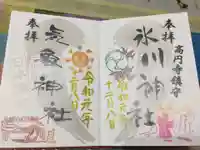 奉拝
高円寺鎮守
氷川神社
令和元年
十二月八日
奉拝
気象神社
令和元年
十二月八日